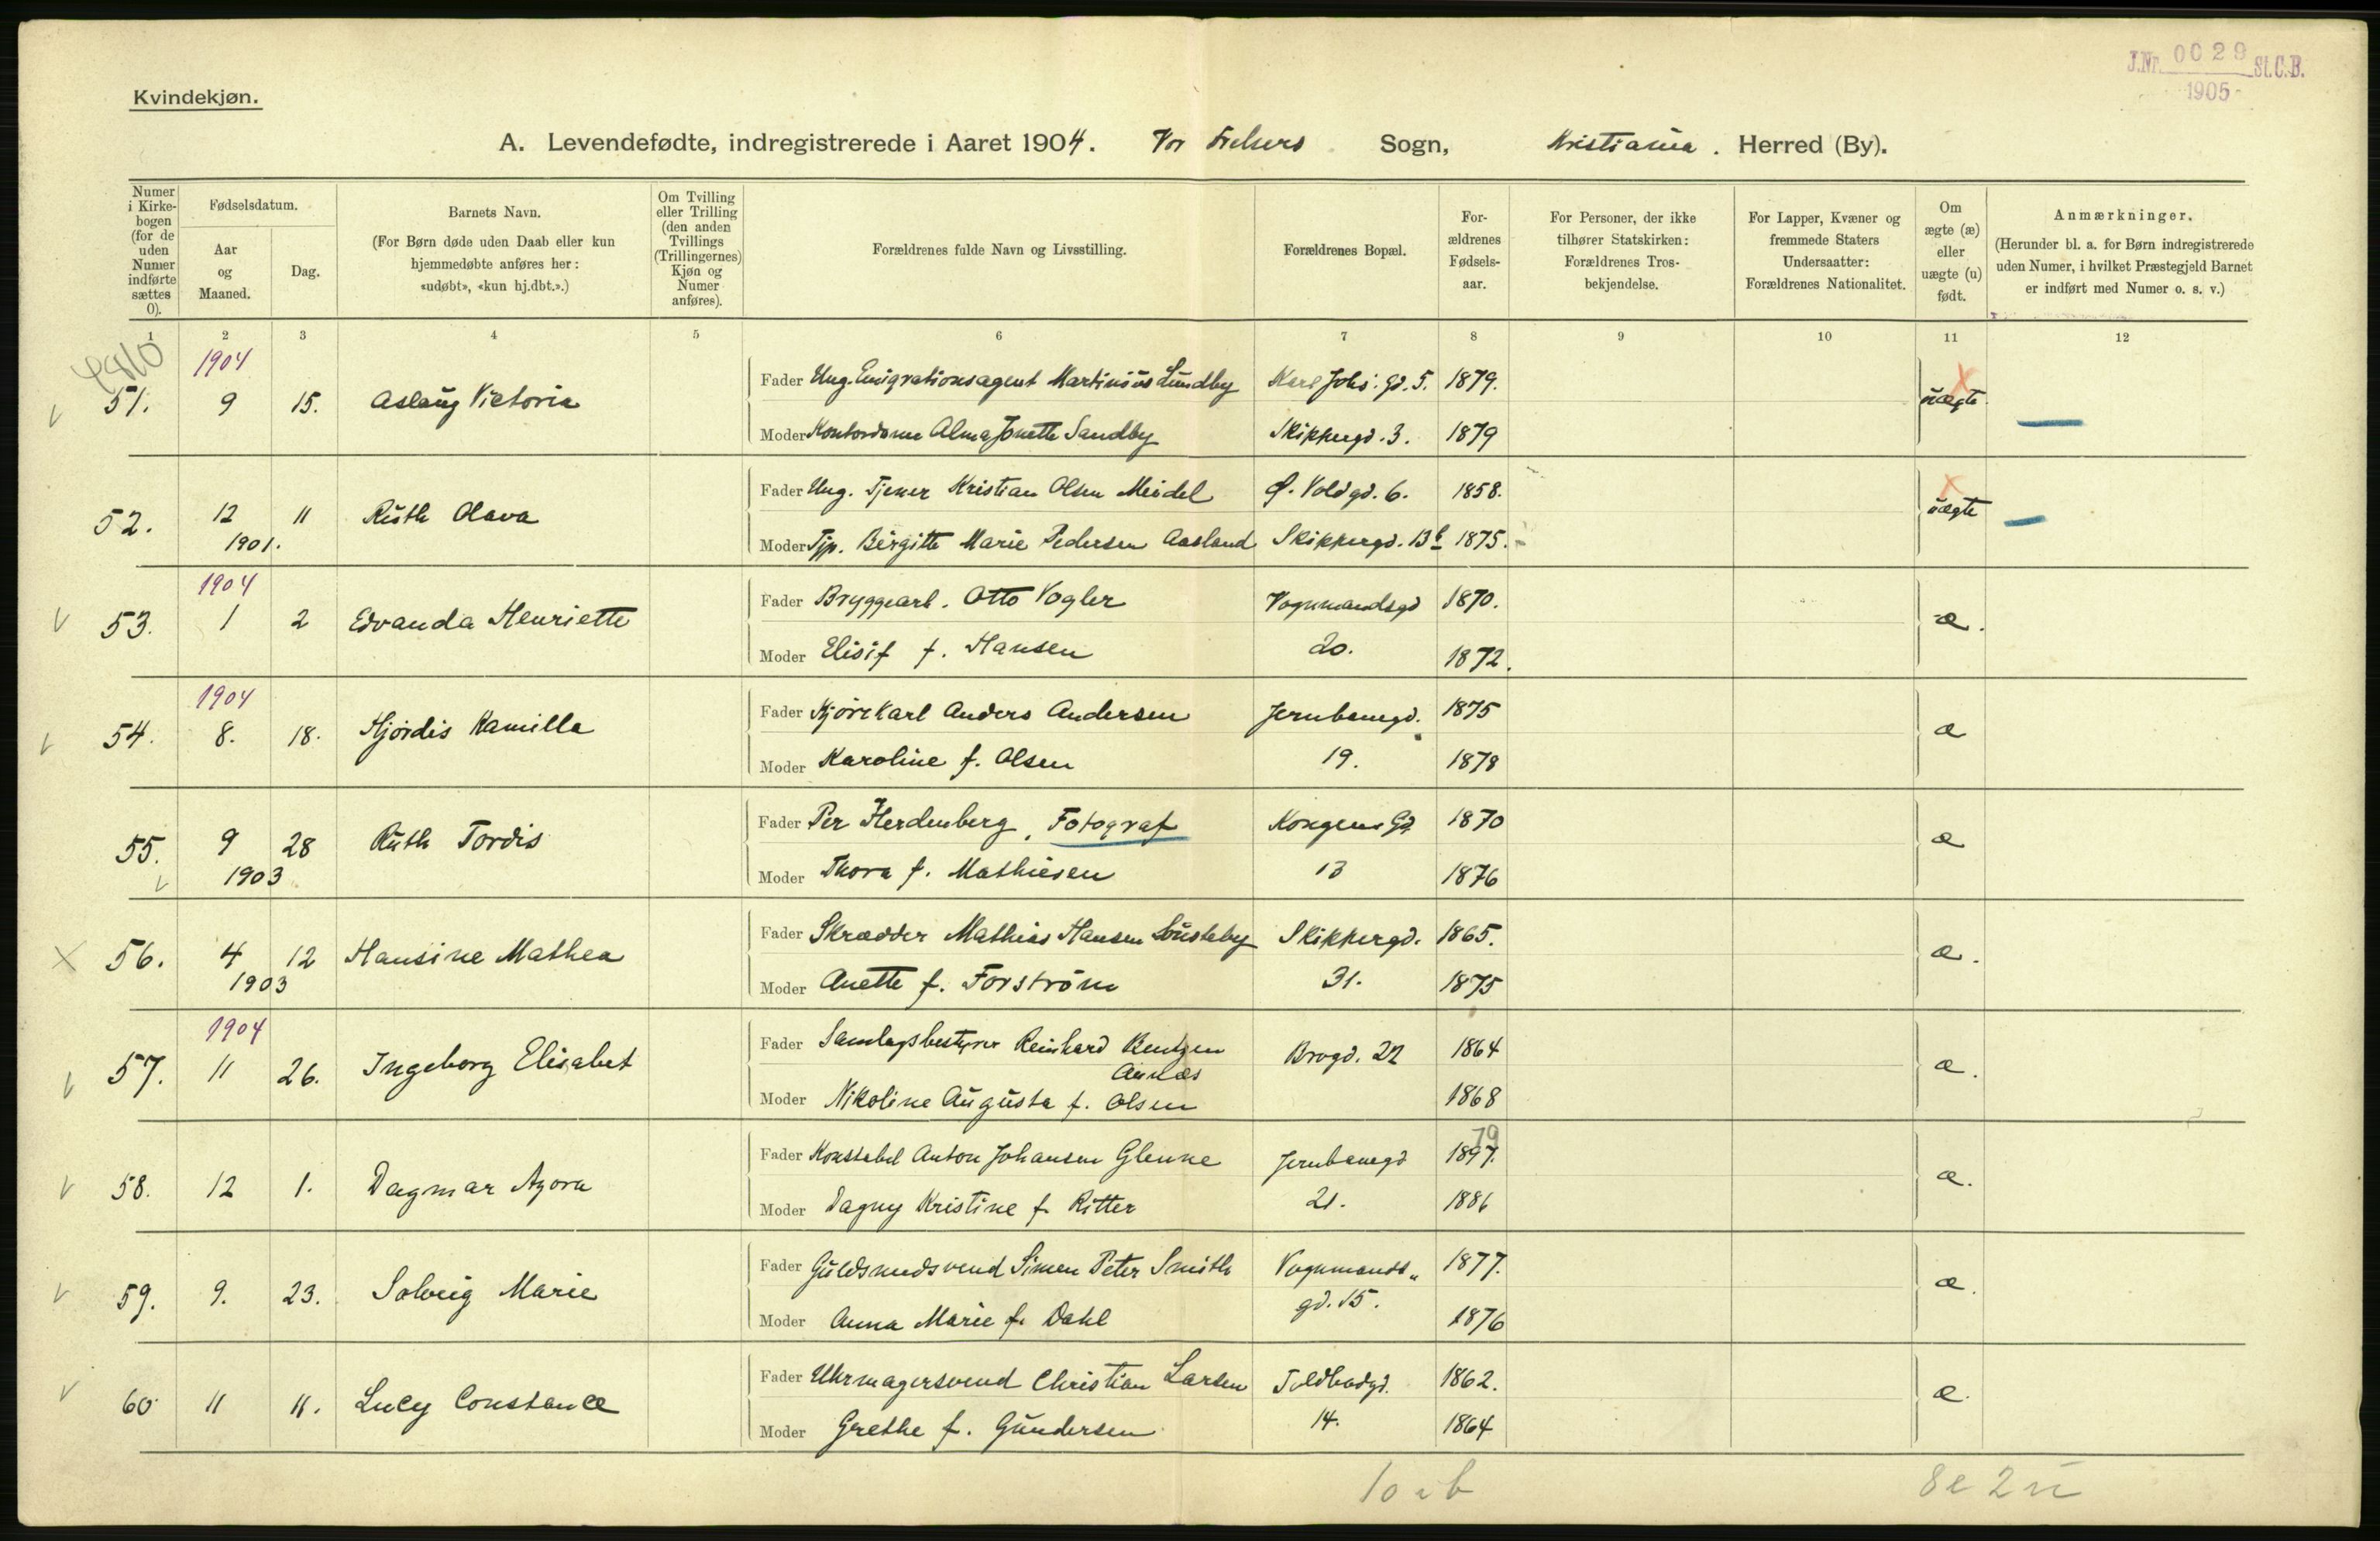 J.Nr. 0029 St.C.B.
1905
Kvindekjøn.
A. Levendefødte, indregistrerede i Aaret 1904. Vor Frelsers Sogn, Kristiania. Herred (By).
Numer i Kirke-bogen (for de uden Numer indførte sættes 0).
Fødselsdatum.
Aar og Maaned.
Dag.
Barnets Navn.
(For Børn døde uden Daab eller kun hjemmedøbte anføres her: «udøbt», «kun hj.dbt.».)
Om Tvilling eller Trilling (den anden Tvillings (Trillingernes) Kjøn og Numer anføres).
Forældrenes fulde Navn og Livsstilling.
Forældrenes Bopæl.
For-ældrenes Fødsels-aar.
For Personer, der ikke tilhører Statskirken: Forældrenes Tros-bekjendelse.
For Lapper, Kvæner og fremmede Staters Undersaatter: Forældrenes Nationalitet.
Om ægte (æ) eller uægte (u) født.
Anmærkninger.
(Herunder bl. a. for Børn indregistrerede uden Numer, i hvilket Præstegjeld Barnet er indført med Numer o. s. v.)
1 2 3 4 5 6 7 8 9 10 11 12
1904
51. 9 15. Aslaug Victoria Fader Ung. Emigrationsagent Martinius Lundby Karl Johs. Gd. 5. 1879. uægte
Moder Kontordame Alma Jonette Sandby Skippergd. 3. 1879
52. 12 11 Ruth Olava Fader Ung. Tjener Kristian Olsen Meidel Ø. Voldgd. 6. 1858. uægte
1901. Moder Tjp. Birgitte Marie Pedersen Aasland Skippergd. 13b 1875.
1904
53. 1 2 Edvanda Henriette Fader Bryggearb. Otto Vogler Vognmandsgd 1870. æ.
Moder Elisif f. Hansen 20. 1872.
1904
54. 8. 18. Hjördis Kamilla Fader Kjørekarl Anders Andersen Jernbanegd. 1875 æ
Moder Karoline f. Olsen 19. 1878
55. 9 28 Ruth Tordis Fader Per Herdenberg, Fotograf Kongens Gd 1870 æ
1903 Moder Thora f. Mathiesen 13 1876
56. 4 12 Hansine Mathea Fader Skrædder Mathias Hansen Skippergd. 1865. æ.
1903 Moder Anette f. Forström 31. 1875
1904
57. 11 26. Ingeborg Elisabet Fader Samlagsbestyrer Reinhard Bentzen Brogd. 22 1864 æ.
Aunæs
Moder Nikoline Augusta f. Olsen 1868
79
58. 12 1. Dagmar Azora Fader Konstabel Anton Johansen Glenne Jernbanegd 1897. æ.
Moder Dagny Kristine f. Ritter 21. 1886
59. 9. 23. Solveig Marie Fader Guldsmedsvend Simen Peter Smith Vognmands„ 1877. æ.
gd. 15.
Moder Anna Marie f. Dahl 1876
60 11 11. Lucy Constance Fader Uhrmagersvend Christian Larsen Toldbodgd. 1862. æ.
Moder Grethe f. Gundersen 14. 1864
8e 2u